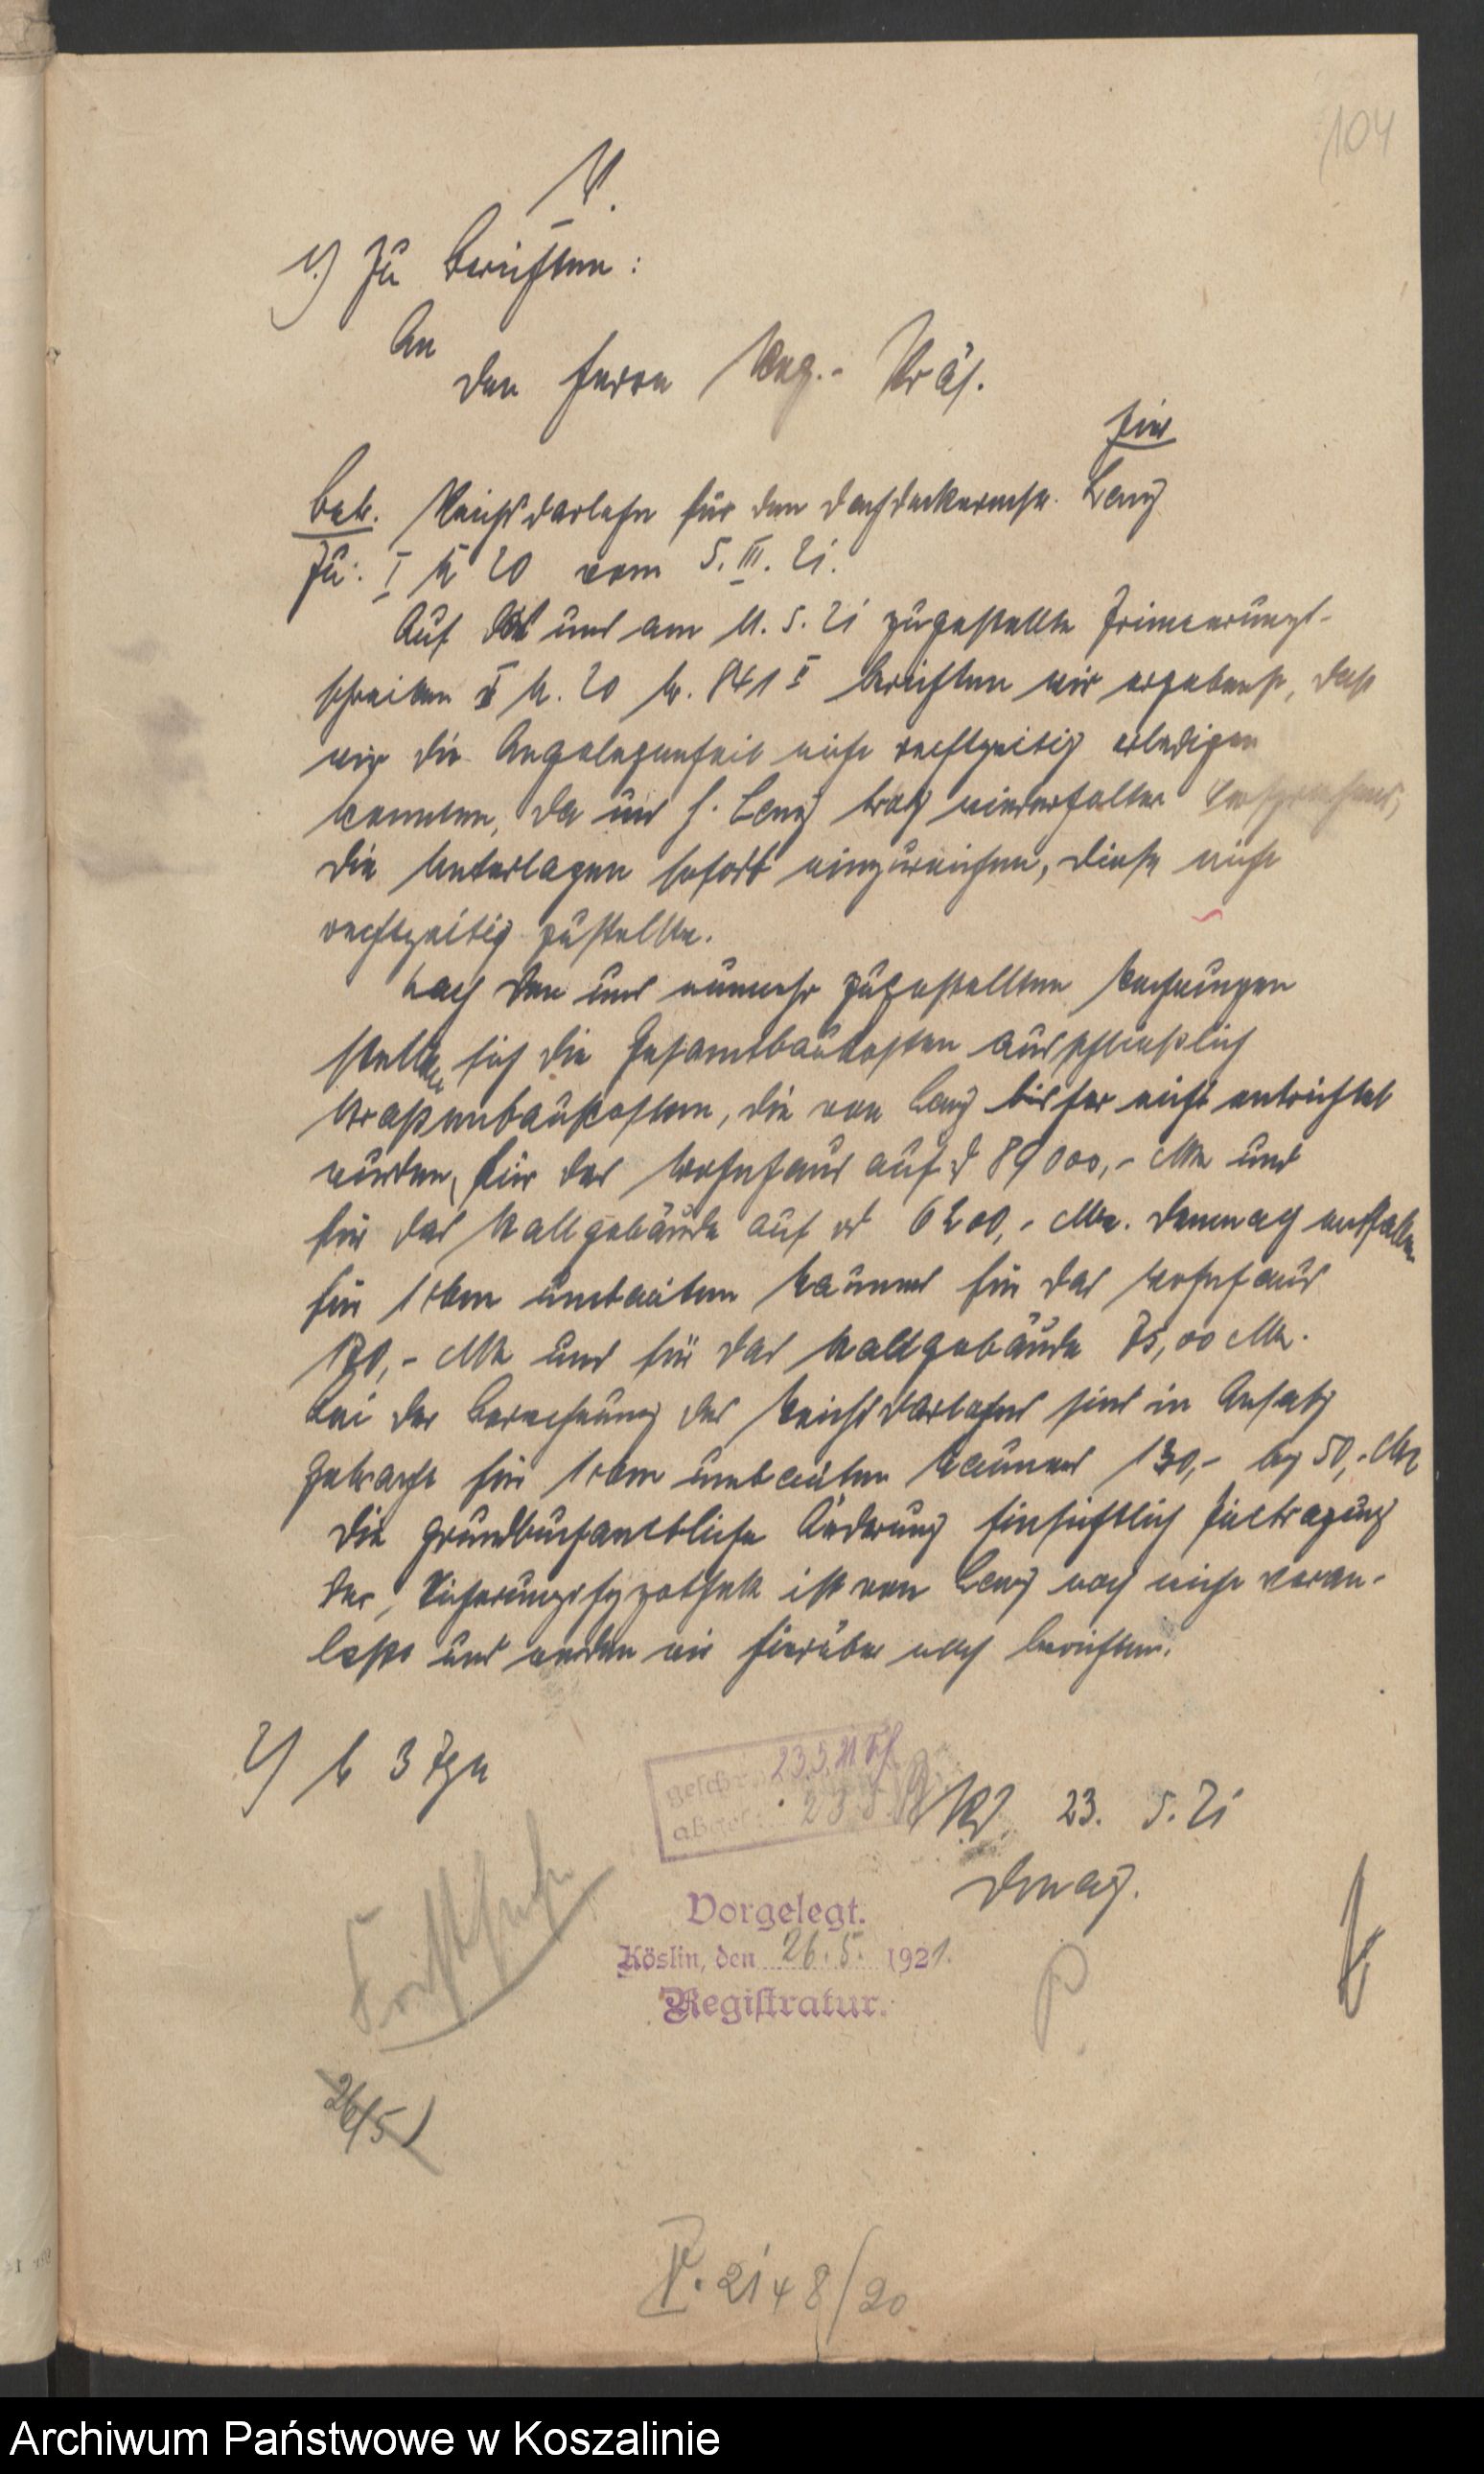 104
V.
1.) Zu berichten:
An
den Herrn Reg.- Präs.
hier
Betr. Reichsdarlehn für den Dachdeckermstr. Lenz
Zu: I N 20 vom 5. III. 21.
Auf das uns am 11. 5. 21 zugestellte Erinnerungs-
schreiben I N. 20 Nr. 841 II berichten wir ergebenst, daß
wir die Angelegenheit nicht rechtzeitig erledigen
konnten, da uns H. Lenz trotz wiederholter
die Unterlagen sofort einzureichen, diese nicht
rechtzeitig zustellte.
Nach den uns nunmehr zugestellten Rechnungen
stellen sich die Gesamtbaukosten ausschließlich
Straßenbaukosten, die von Lenz bisher nicht entrichtet
wurden, für das Wohnhaus auf 89 000,- Mk und
für das Stallgebäude auf rd 6200,- Mk. Demnach entfallen
für 1 cbm umbauten Raumes für das Wohnhaus
170,- Mk und für das Stallgebäude 75,00 Mk.
Bei der Berechnung des Reichsdarlehns sind in Ansatz
gebracht für 1 cbm umbauten Raumes 130,- bz 50,- Mk
Die grundbuchamtliche Änderung hinsichtlich Eintragung
der Sicherungshypothek ist von Lenz noch nicht veran-
laßt und werden wir hierüber noch berichten.
2) N 3 Tgn
geschr. 23.5.21
abges.
23. 5. 21
Vorgelegt.
Köslin, den 26.5. 1921.
Registratur.
P
26/5
V. 2148/20
Archiwum Państwowe w Koszalinie